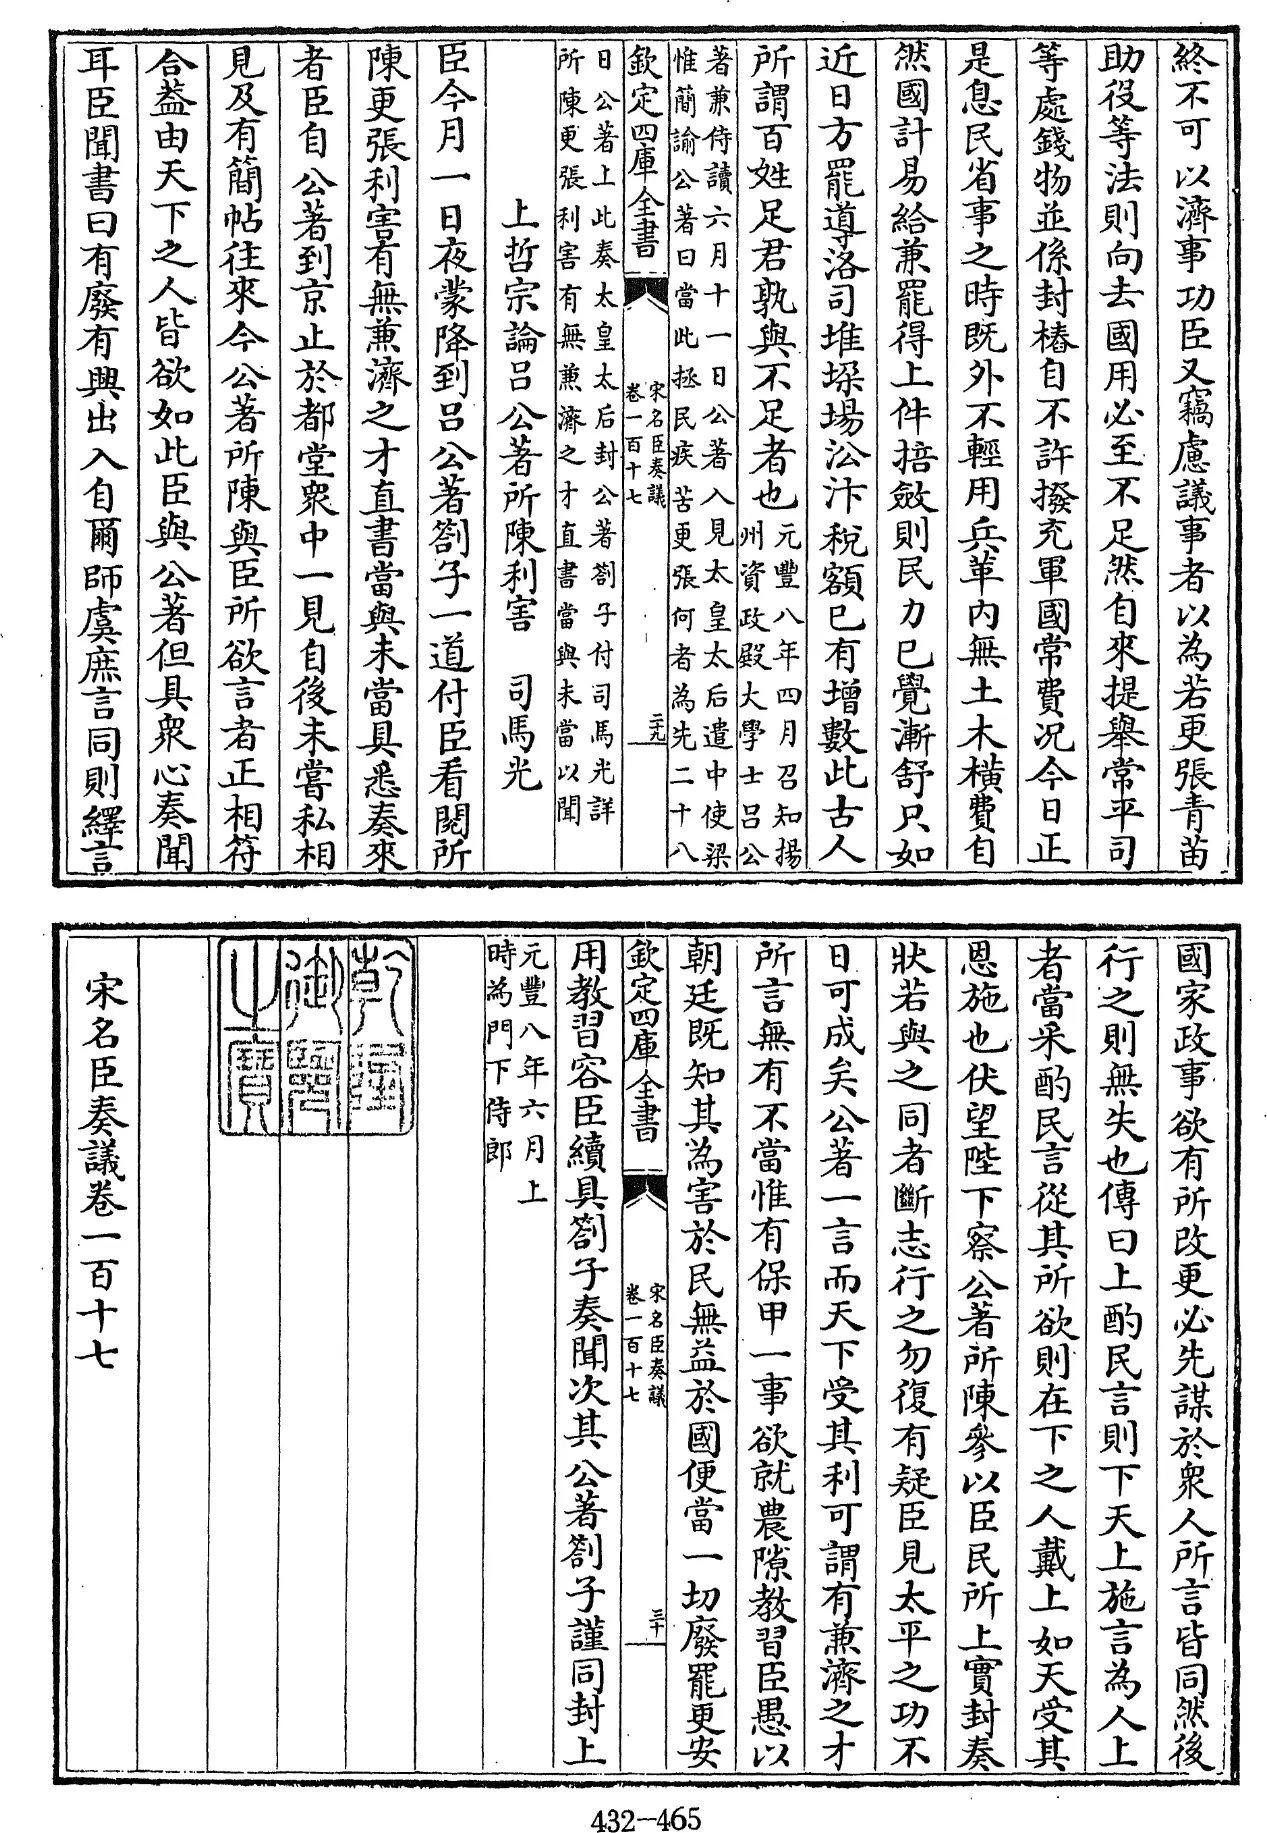 終不可以濟事功臣又竊慮議事者以為若更張青苗
助役等法則向去國用必至不足然自來提舉常平司
等處錢物並係封樁自不許撥充軍國常費况今日正
是息民省事之時既外不輕用兵革内無土木橫費自
然國計易給兼罷得上件掊斂則民力已覺漸舒只如
近日方罷導洛司堆垜場㳂汴稅額已有增數此古人
所謂百姓足君孰與不足者也元豐八年四月召知揚
州資政殿大學士吕公
著兼侍讀六月十一日公著入見太皇太后遣中使梁
惟簡諭公著曰當此拯民疾苦更張何者為先二十八
欽定四庫全書
宋名臣奏議
卷一百十七
二十九
日公著上此奏太皇太后封公著劄子付司馬光詳
所陳更張利害有無兼濟之才直書當與未當以聞
上哲宗論吕公著所陳利害 司馬光
臣今月一日夜蒙降到吕公著劄子一道付臣看閱所
陳更張利害有無兼濟之才直書當與未當具悉奏來
者臣自公著到京止於都堂衆中一見自後未嘗私相
見及有簡帖往來今公著所陳與臣所欲言者正相符
合葢由天下之人皆欲如此臣與公著但具衆心奏聞
耳臣聞書曰有廢有興出入自爾師虞庶言同則繹言
國家政事欲有所改更必先謀於衆人所言皆同然後
行之則無失也傳曰上酌民言則下天上施言為人上
者當采酌民言從其所欲則在下之人戴上如天受其
恩施也伏望陛下察公著所陳參以臣民所上實封奏
狀若與之同者斷志行之勿復有疑臣見太平之功不
日可成矣公著一言而天下受其利可謂有兼濟之才
所言無有不當惟有保甲一事欲就農隙教習臣愚以
朝廷既知其為害於民無益於國便當一切廢罷更安
欽定四庫全書
宋名臣奏議
卷一百十七
三十
用教習容臣續具劄子奏聞次其公著劄子謹同封上
元豐八年六月上
時為門下侍郎
乾隆御覽之寶
宋名臣奏議卷一百十七
432-465